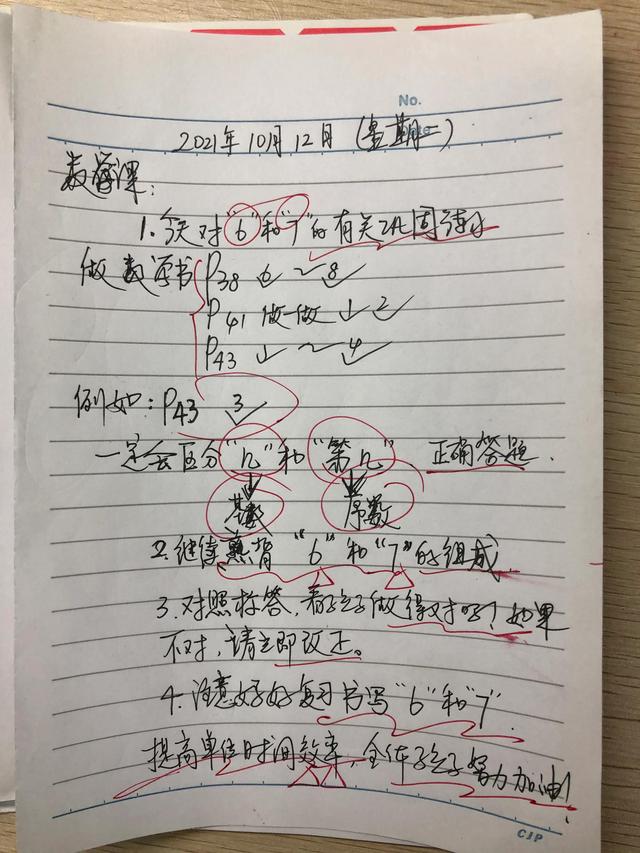 No.
Date
2021年10月12日 (星期二)
数学课:
1.今天对"6"和"7"的有关巩固练习
做数学书 P38 6~8
P41 做一做 1 2
P43 1~4
例如:P43 3
一定会区分"几"和"第几" 正确答题.
基数 序数
2.继续熟背"6"和"7"的组成
3.对照标答,看孩子做得对吗?如果
不对,请立即改正。
4.注意好好复习书写"6"和"7"
提高单位时间效率,全体孩子努力加油!
CJP